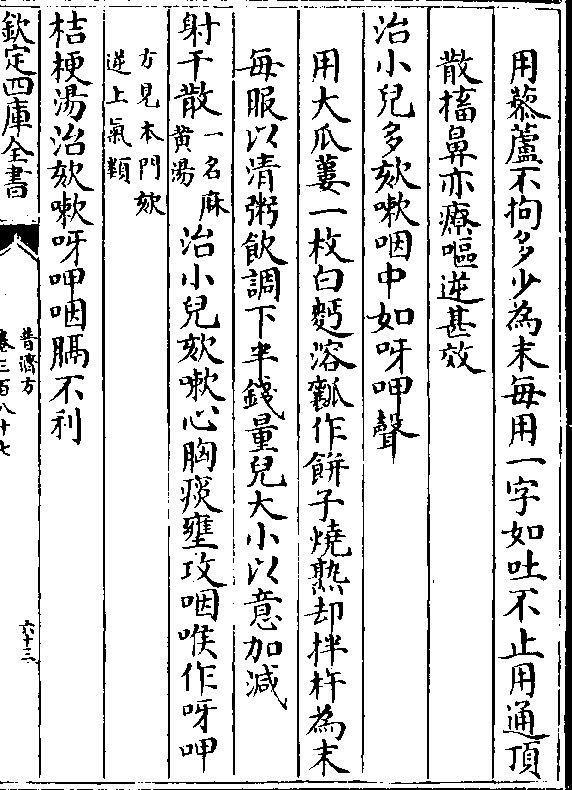 用藜蘆不拘多少為末每用一字如吐不止用通頂
散搐鼻亦療嘔逆甚效
治小兒多欬嗽咽中如呀呷聲
用大瓜蔞一枚白麪溶瓤作餅子燒熟却拌杵為末
每服以清粥飲調下半錢量兒大小以意加減
射干散一名麻黄湯治小兒欬嗽心胸痰壅攻咽喉作呀呷
方見本門欬逆上氣類
桔梗湯治欬嗽呀呷咽膈不利
欽定四庫全書
普濟方
卷三百八十七
六十三